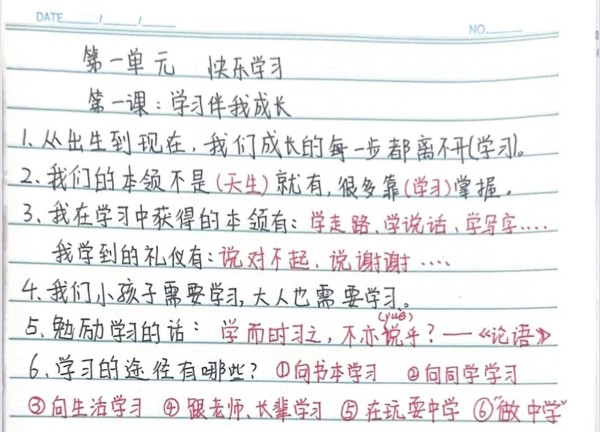 DATE / /
NO.
第一单元 快乐学习
第一课：学习伴我成长
1、从出生到现在，我们成长的每一步都离不开(学习)。
2、我们的本领不是(天生)就有，很多靠(学习)掌握。
3、我在学习中获得的本领有：学走路、学说话、学写字....
我学到的礼仪有：说对不起、说谢谢....
4、我们小孩子需要学习，大人也需要学习。
(yuè)
5、勉励学习的话：学而时习之，不亦说乎？——《论语》
6、学习的途径有哪些？①向书本学习 ②向同学学习
③向生活学习 ④跟老师、长辈学习 ⑤在玩耍中学 ⑥“做中学”